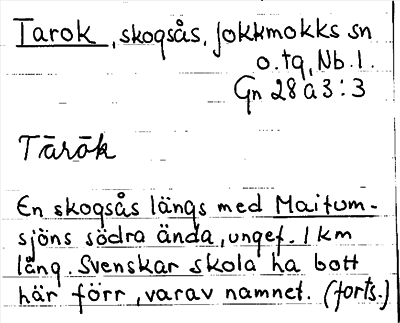 Tarok, skogsås, Jokkmokks sn
o. tg, Nb. l.
Gn 28 a 3 : 3
Tārōk
En skogsås längs med Maitum-
sjöns södra ända, ungef. 1 km
lång. Svenskar skola ha bott
här förr, varav namnet. (forts.)